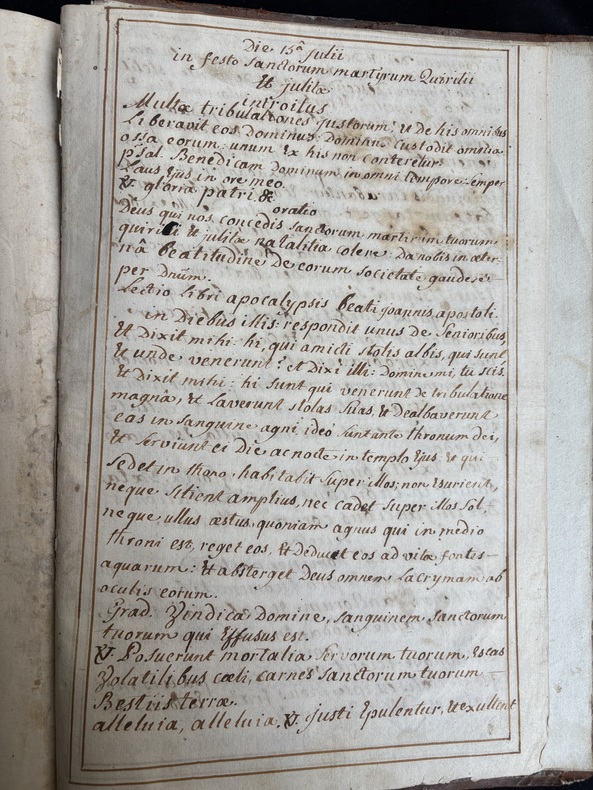 Die 15ª Julii
in festo Sanctorum martyrum Quirilii
Et julitæ
introitus
Multæ tribulationes justorum, et de his omnibus
Liberavit eos dominus: dominus custodit omnia
ossa eorum unum Ex his non conteretur.
psal. Benedicam dominum in omni tempore: semper
Laus Ejus in ore meo.
℣. gloria patri. &
oratio
Deus qui nos concedis sanctorum martirum tuorum
et julitæ natalitia colere: Da nobis in æter-
nâ Beatitudine De eorum societate gaudere
per Dnūm.
Lectio libri apocalypsis Beati joannis apostoli.
in Diebus illis: respondit unus de Senioribus,
Et Dixit mihi: hi, qui amicti stolis albis, qui sunt
Et unde venerunt? et Dixi illi: Domine mi, tu scis.
Et Dixit mihi: hi sunt qui venerunt de tribulatione
magnâ, et Laverunt stolas suas, et Dealbaverunt
eas in sanguine agni ideo sunt ante thronum dei,
Et serviunt ei die ac nocte in templo Ejus et qui
sedet in throno, habitabit super illos; non Esurient,
neque sitient amplius, nec cadet super illos sol,
neque ullus æstus, quoniam agnus qui in medio
throni est, reget eos, Et Deducet eos ad vitæ fontes
aquarum: Et absterget Deus omnem Lacrymam ab
oculis eorum.
Grad. Vindica Domine, sanguinem sanctorum
tuorum qui Effusus est.
℣. Posuerunt mortalia servorum tuorum, Escas
Volatilibus cœli, carnes sanctorum tuorum
Bestiis terræ.
alleluia, alleluia, ℣. justi Epulentur, et exultent